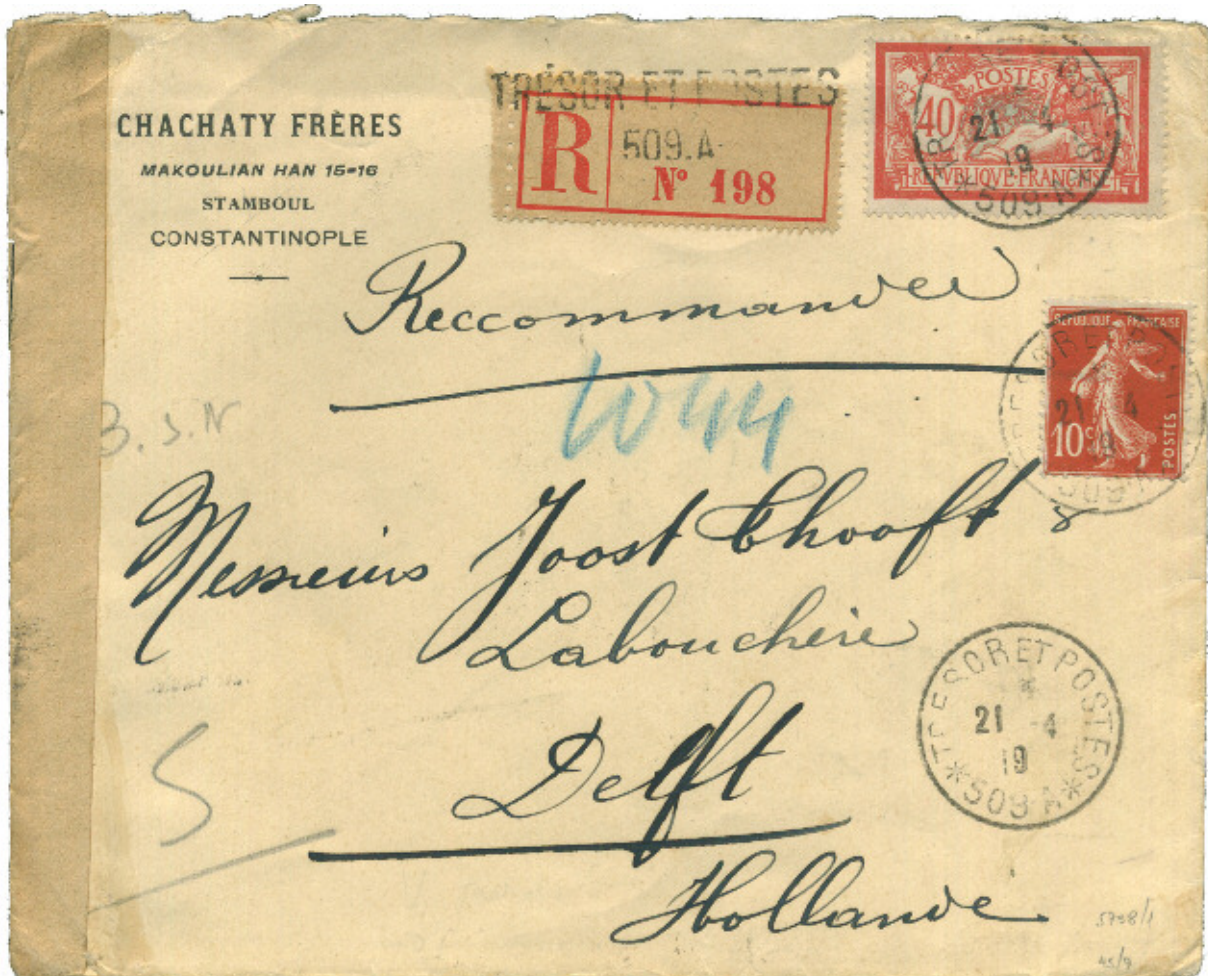 CHACHATY FRÈRES
MAKOULIAN HAN 15-16
STAMBOUL
CONSTANTINOPLE
TRÉSOR ET POSTES
R
509.A
N° 198
POSTES
40
REPUBLIQUE FRANCAISE
21 -4
19
*509.A*
Reccommandee
REPUBLIQUE FRANCAISE
10 c
POSTES
21 -4
19
1044
B.S.N
Messieurs Joost Thooft &
Labouchère
Delft
Hollande
TRESOR ET POSTES
21 -4
19
*509 A*
S
45/9